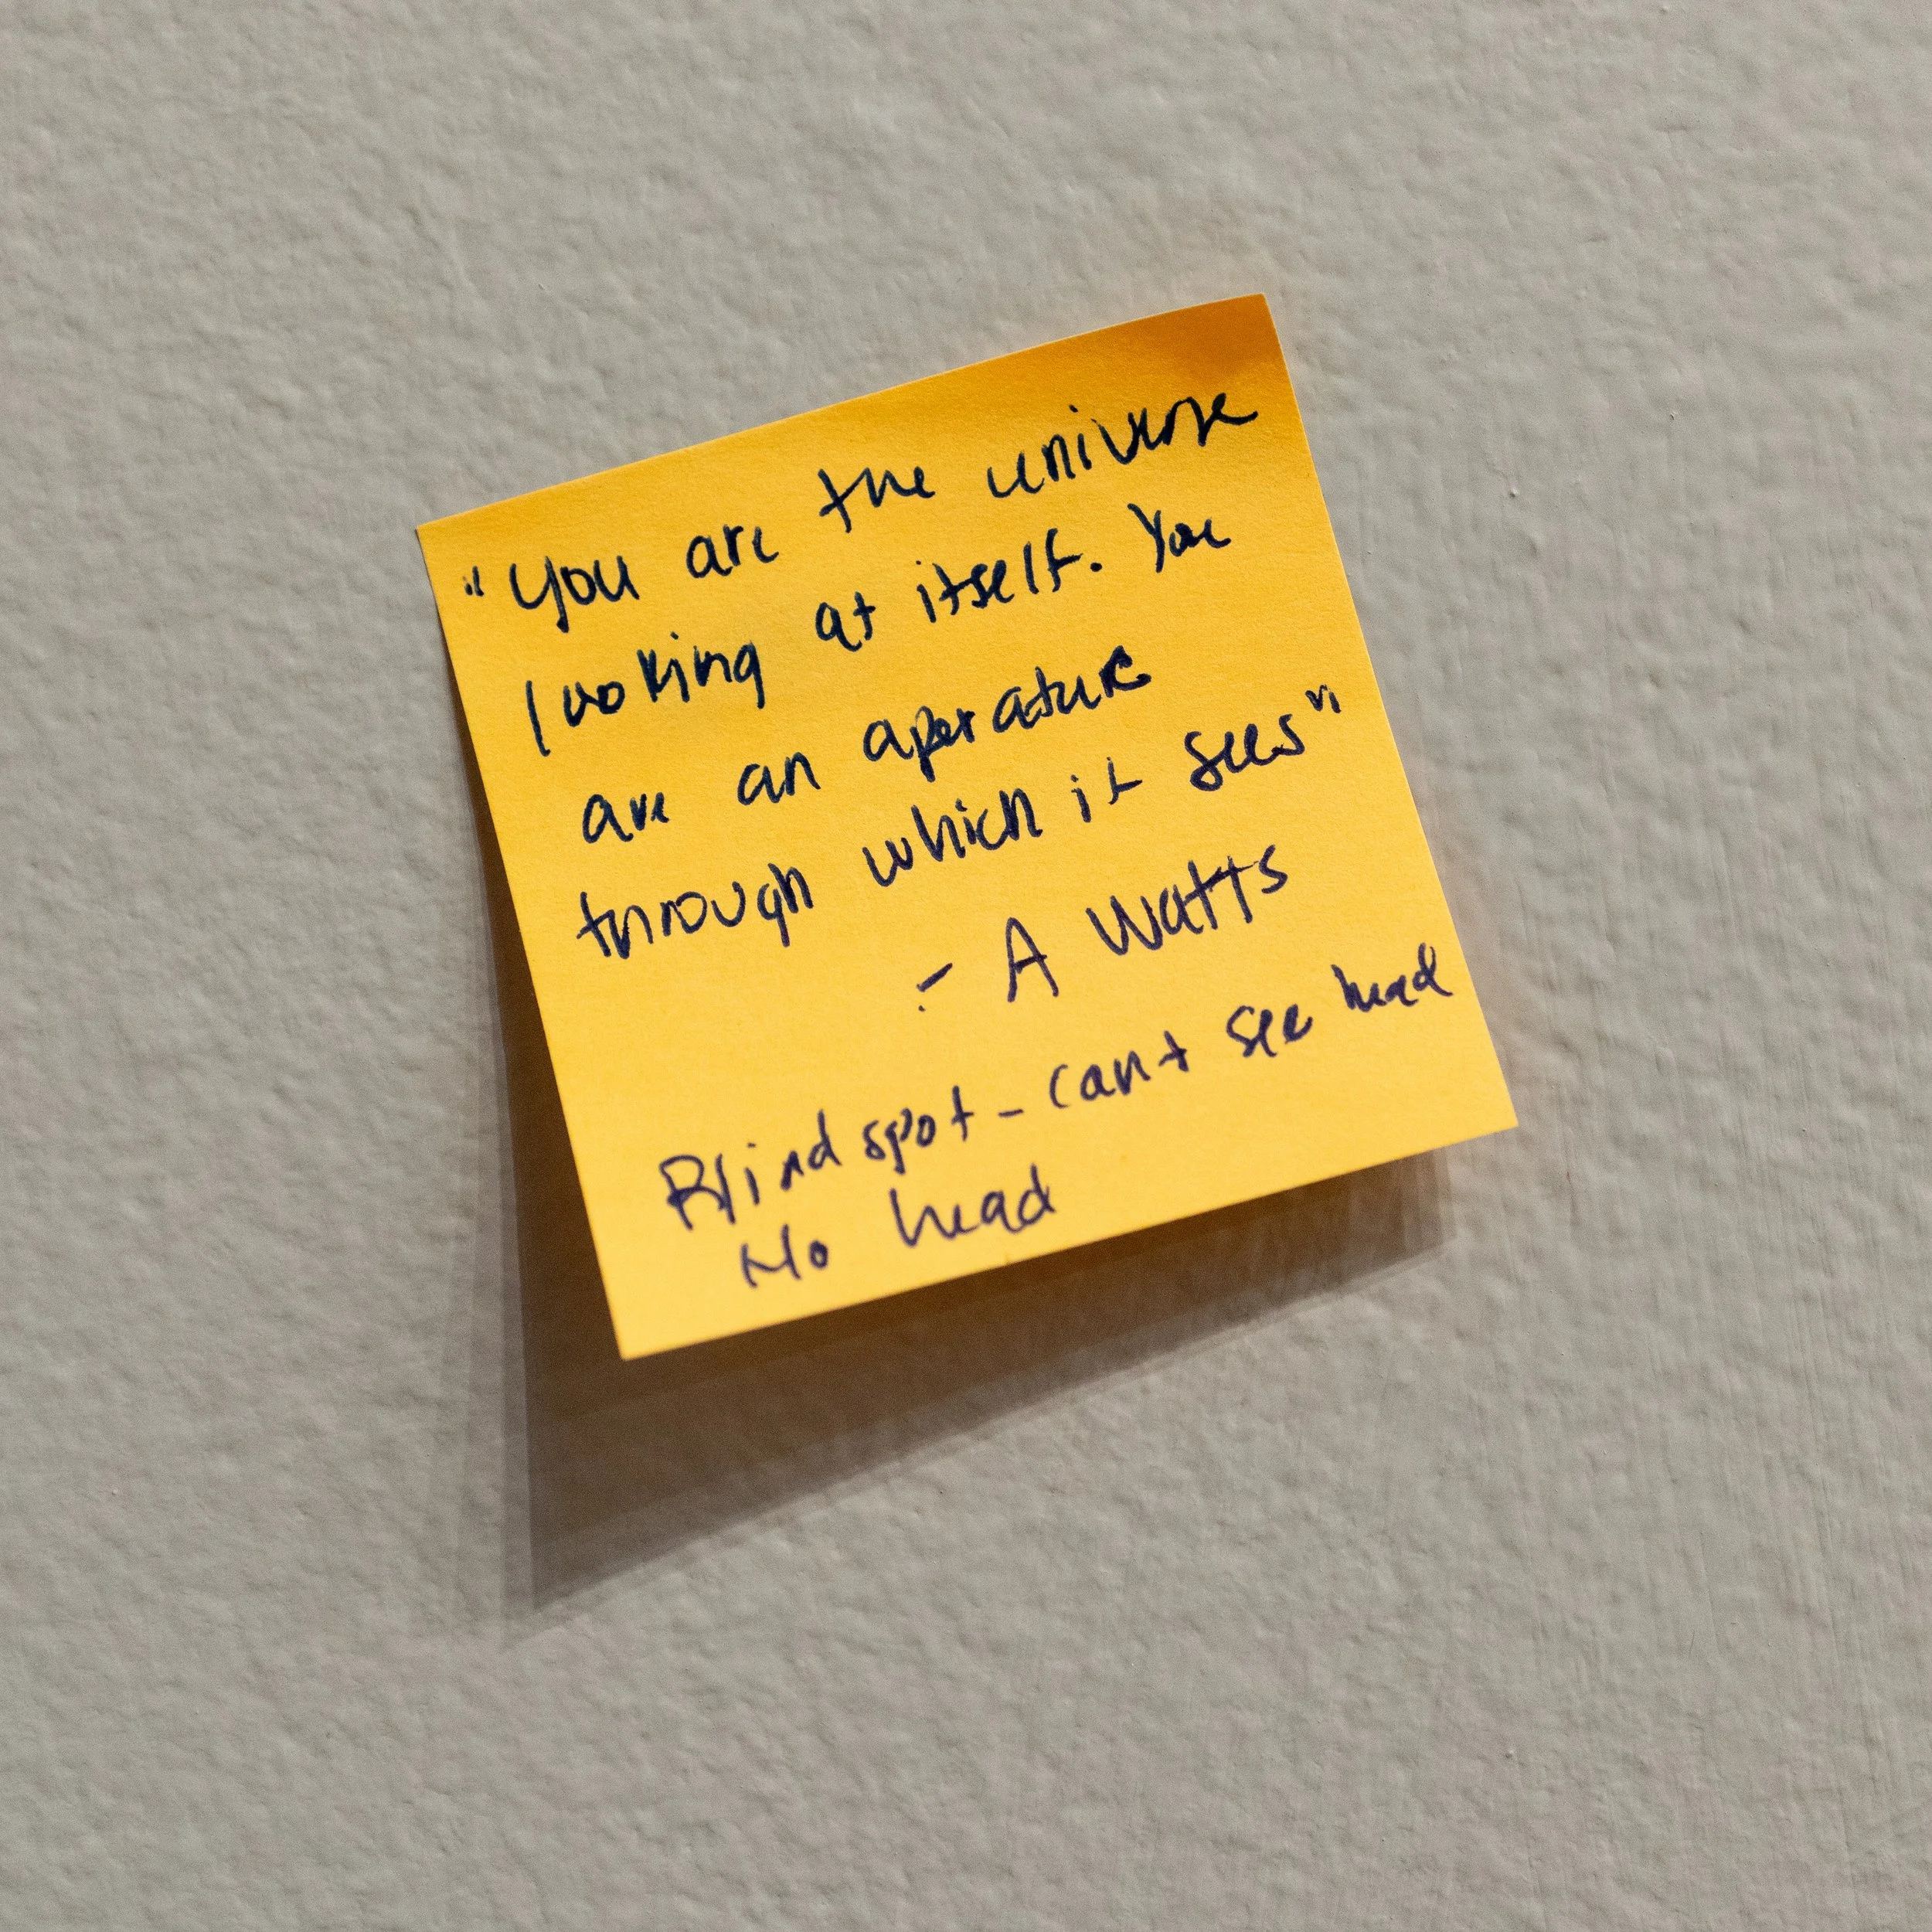 "You are the universe
looking at itself. You
are an aperature
through which it sees"
- A Watts
Blind spot - can't see head
No head